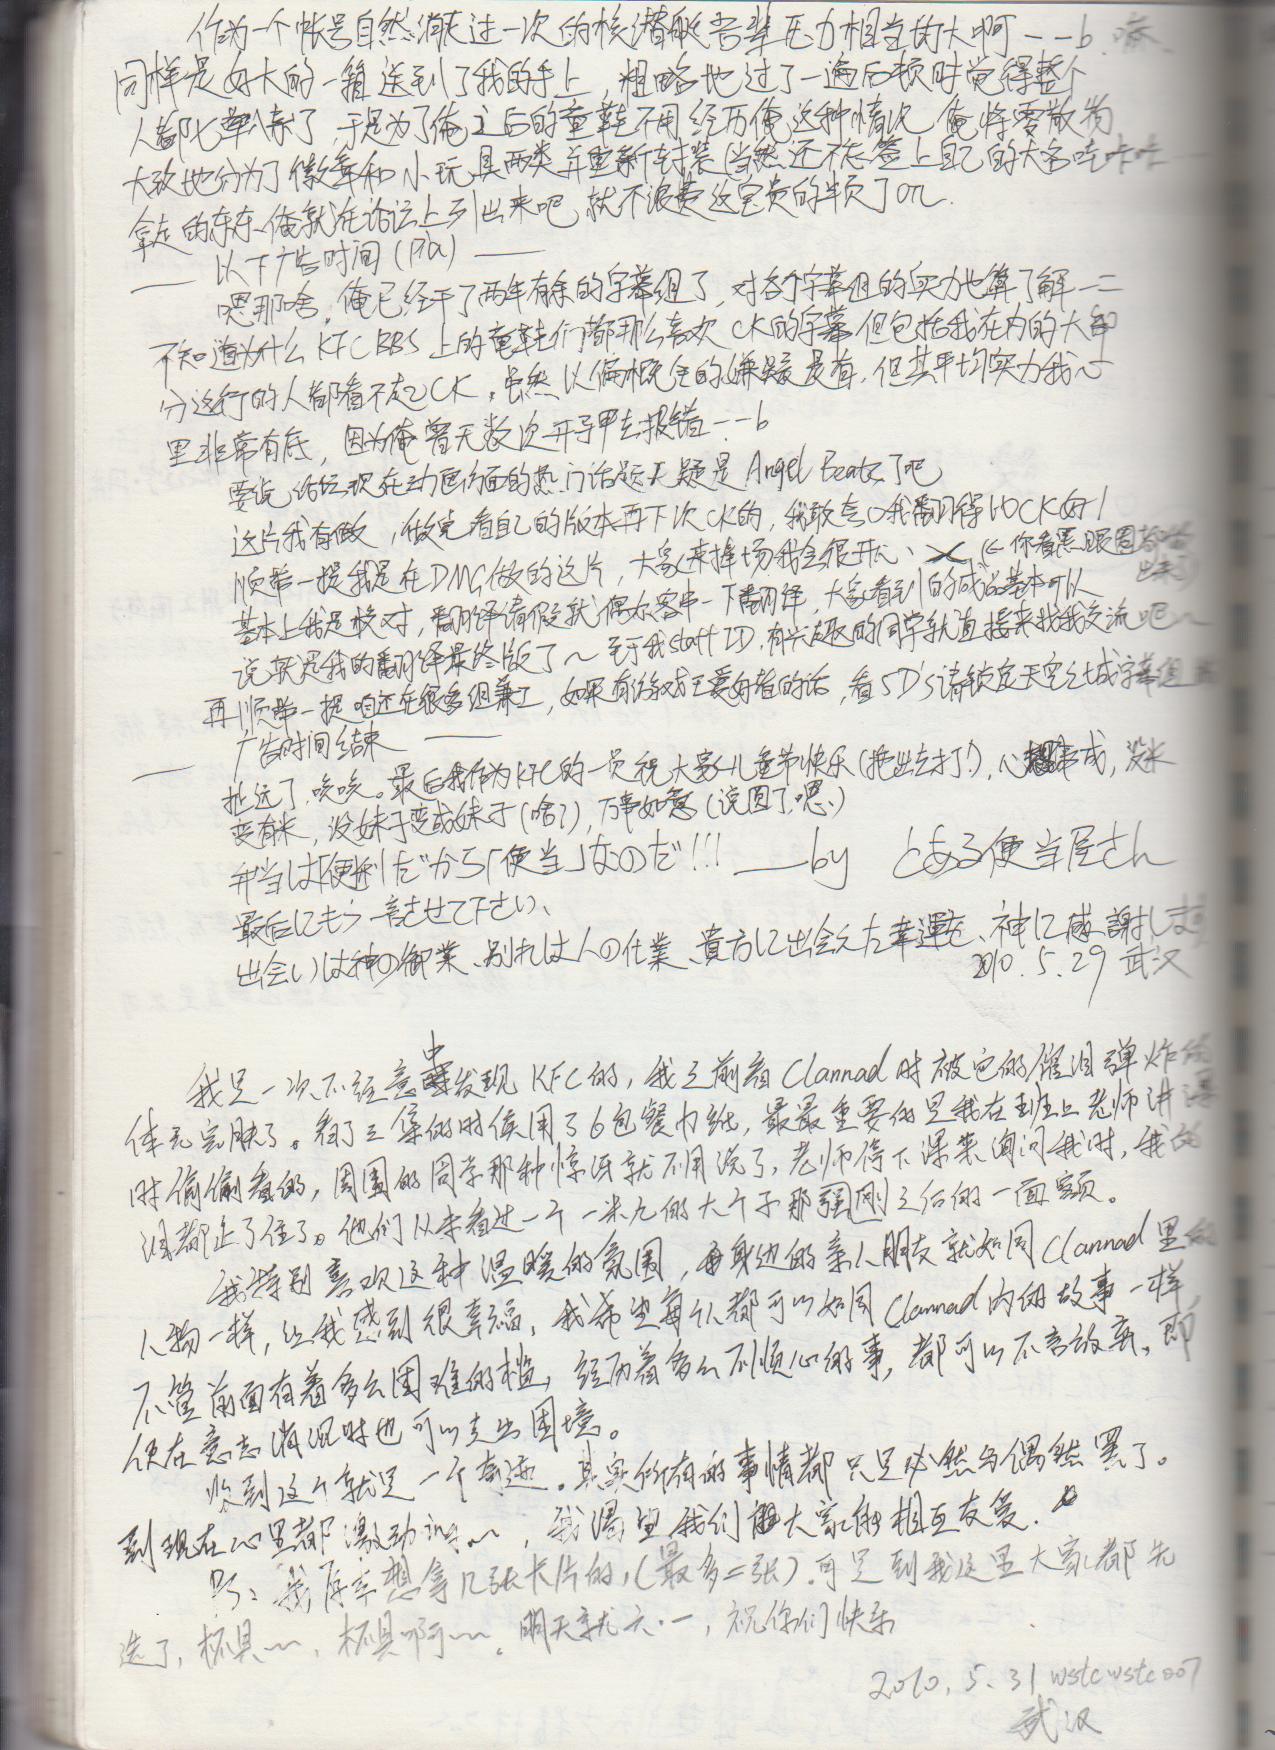 作为一个帐号自然消灭过一次的核潜艇吾辈压力相当的大啊－－b
同样是好大的一箱送到了我的手上，粗略地过了一遍后顿时觉得整个
人都七零八落了，于是为了俺之后的童鞋不用经历俺这种情况 俺将零散物
大致地分为了徽章和小玩具两类并重新封装(当然还不忘签上自己的大名哇咔咔
拿走的东东俺就在论坛上列出来吧，就不浪费这宝贵的半页了orz.
—— 以下广告时间 (Pia) ——
嗯那啥，俺已经干了两年有余的字幕组了，对各个字幕组的实力也算了解一二
不知道为什么KFC BBS上的童鞋们都那么喜欢CK的字幕 但包括我在内的大部
分这行的人都看不起CK。虽然以偏概全的嫌疑是有，但其平均实力我心
里非常有底，因为俺曾无数次开手甲去报错－－b
要说论坛现在动画方面的热门话题无疑是Angel Beats了吧
这片我有做，做完看自己的版本再下次CK的，我敢夸口我翻得比CK好！
顺带一提我是在DMG做的这片，大家来捧场我会很开心 (←你看黑眼圈都
出来了)
基本上我是校对，翻译请假就偶尔客串一下翻译，大家看到的成品基本可以
说就是我的翻译最终版了～至于我staff ID，有兴趣的同学就直接来找我交流吧～
再顺带一提咱还在很多组兼工，如果有游戏王爱好者的话，看5D's请锁定天空之城字幕组
—— 广告时间结束 ——
扯远了，咳咳。最后我作为KFC的一员祝大家儿童节快乐(拖出去打！)，心想事成，没米
变有米，没妹子变成妹子(啥？)，万事如意(说圆了，嗯、)
弁当は「便利」だから「便当」なのだ!!! ——by とある便当屋さん
最后にもう一言させて下さい、
出会いは神の御業、别れは人の仕業、貴方に出会えた幸運を、神に感謝します
2010.5.29 武汉
我是一次不经意中发现KFC的，我之前看Clannad时被它的催泪弹炸的
体无完肤了。看了三集的时候用了6包餐巾纸，最最重要的是我在班上老师讲课
时偷偷看的，周围的同学那种惊讶就不用说了，老师停下课来询问我时，我的
泪都止不住了。他们从未看过一个一米九的大个子那强刚之后的一面貌。
我特别喜欢这种温暖的氛围，每身边的亲人朋友就如同Clannad里的
人物一样，让我感到很幸福，我希望每人都可以如同Clannad内的故事一样，
不管前面有着多么困难的槛，经历着多么不顺心的事，都可以不言放弃，即
使在意志消沉时也可以走出困境。
收到这个就是一个奇迹。其实所有的事情都只是必然与偶然罢了。
到现在心里都激动ing～～，我渴望我们大家能相互友爱.
PS: 我原本想拿几张卡片的，(最多二张)，可是到我这里大家都先
选了，杯具～～，杯具啊～～。明天就六·一，祝你们快乐
2010.5.31 wstcwstc007
武汉